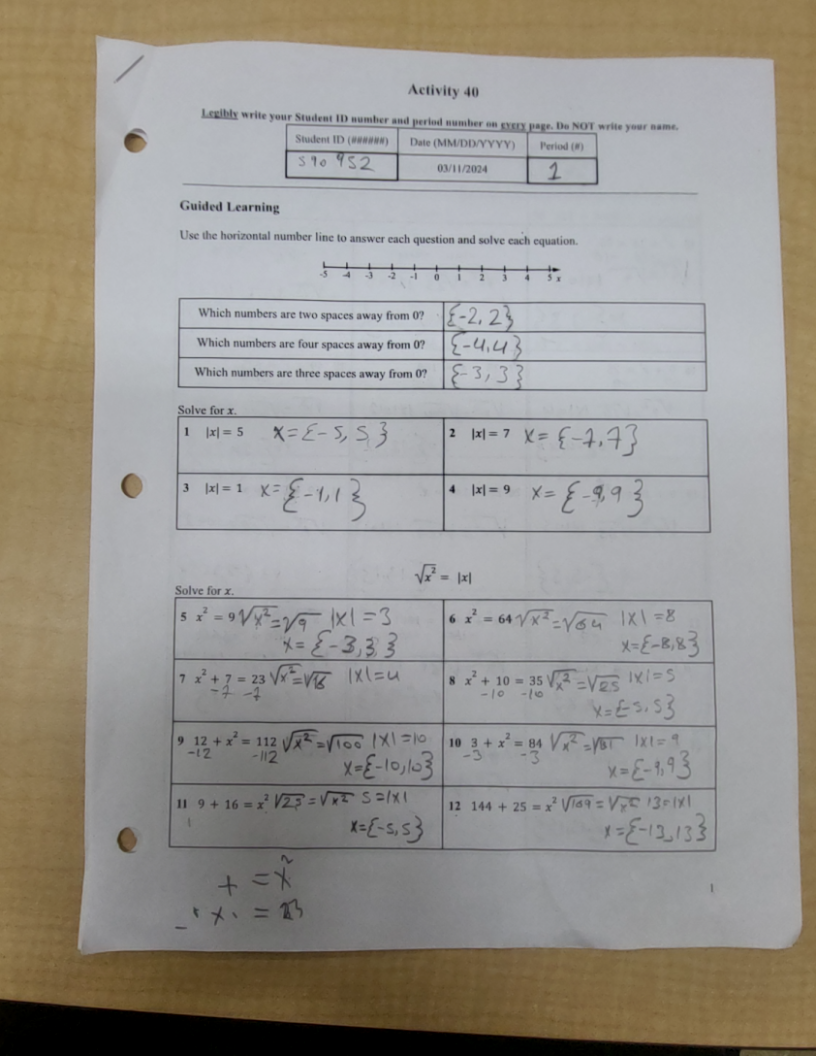 Activity 40
Legibly write your Student ID number and period number on every page. Do NOT write your name.
Student ID (######) Date (MM/DD/YYYY) Period (#)
590 952 03/11/2024 1
Guided Learning
Use the horizontal number line to answer each question and solve each equation.
-5 -4 -3 -2 -1 0 1 2 3 4 5 x
Which numbers are two spaces away from 0? {-2, 2}
Which numbers are four spaces away from 0? {-4,4}
Which numbers are three spaces away from 0? {-3, 3}
Solve for x.
1 |x| = 5 x={-5, 5} 2 |x| = 7 x= {-7,7}
3 |x| = 1 x={-1,1} 4 |x| = 9 x= {-9,9}
√x² = |x|
Solve for x.
5 x² = 9 √x²=√9 |x|=3 6 x² = 64 √x²=√64 |x|=8
x={-3,3} x={-8,8}
7 x² + 7 = 23 √x²=√16 |x|=4 8 x² + 10 = 35 √x²=√25 |x|=5
-7 -7 -10 -10
x={-5,5}
9 12 + x² = 112 √x²=√100 |x|=10 10 3 + x² = 84 √x²=√81 |x|=9
-12 -112 -3 -3
x={-10,10} x={-9,9}
11 9 + 16 = x² √25=√x² 5=|x| 12 144 + 25 = x² √169=√x² 13=|x|
x={-5,5} x={-13,13}
+ =x²
1